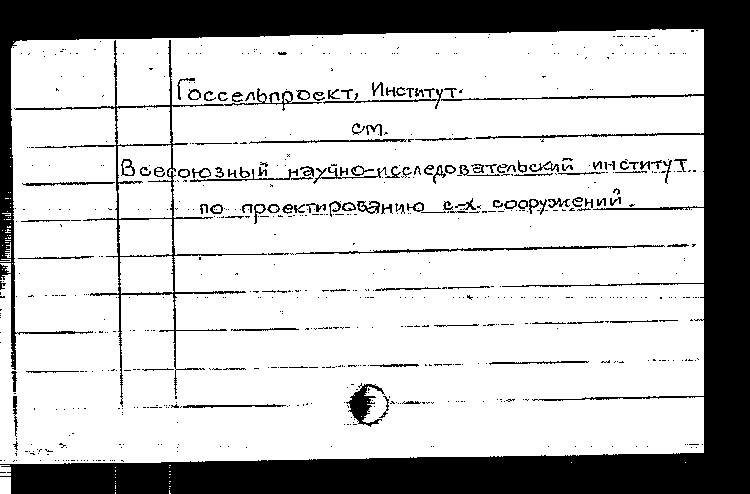 Госсельпроект, Институт.
см.
Всесоюзный научно-исследовательский институт
по проектированию с.-х. сооружений.